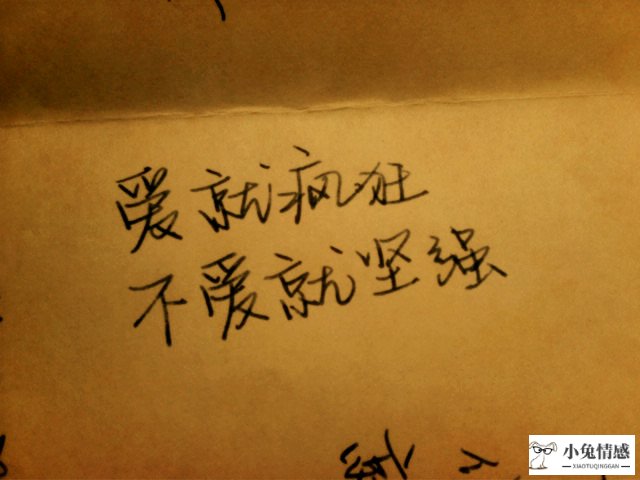 爱就疯狂
不爱就坚强
小兔情感
XIAOTUQINGGAN